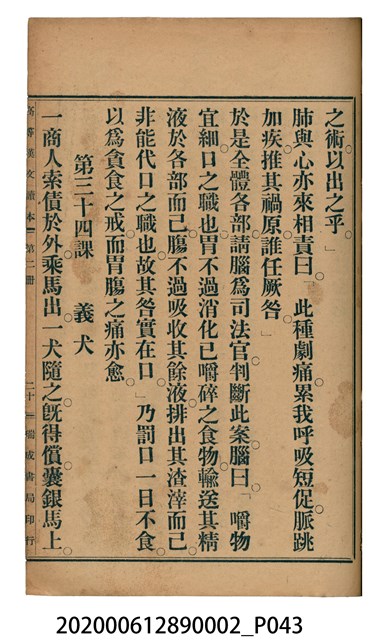 之術以出之乎。」
肺與心亦來相責曰。「此種劇痛累我呼吸短促脈跳
加疾推其禍原誰任厥咎」
於是全體各部請腦爲司法官判斷此案腦曰。「嚼物
宜細口之職也胃不過消化已嚼碎之食物輸送其精
液於各部而已腸不過吸收其餘液排出其渣滓而已
非能代口之職也故其咎實在口」乃罰口一日不食
以爲貪食之戒而胃腸之痛亦愈
第三十四課　義犬
一商人索債於外乘馬出一犬隨之旣得償囊銀馬上
高等漢文讀本 第二册 二十一 瑞成書局印行
202000612890002_P043